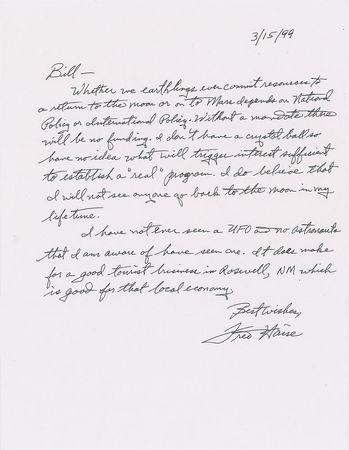 3/15/99
Bill—
Whether we earthlings ever commit resources to
a return to the moon or on to Mars depends on National
Policy or International Policy. Without a mandate there
will be no funding. I don't have a crystal ball so
have no idea what will trigger interest sufficient
to establish a "real" program. I do believe that
I will not see anyone go back to the moon in my
lifetime.
I have not ever seen a UFO and no astronauts
that I am aware of have seen one. It does make
for a good tourist business in Roswell, NM which
is good for that local economy.
Best wishes,
Fred Haise